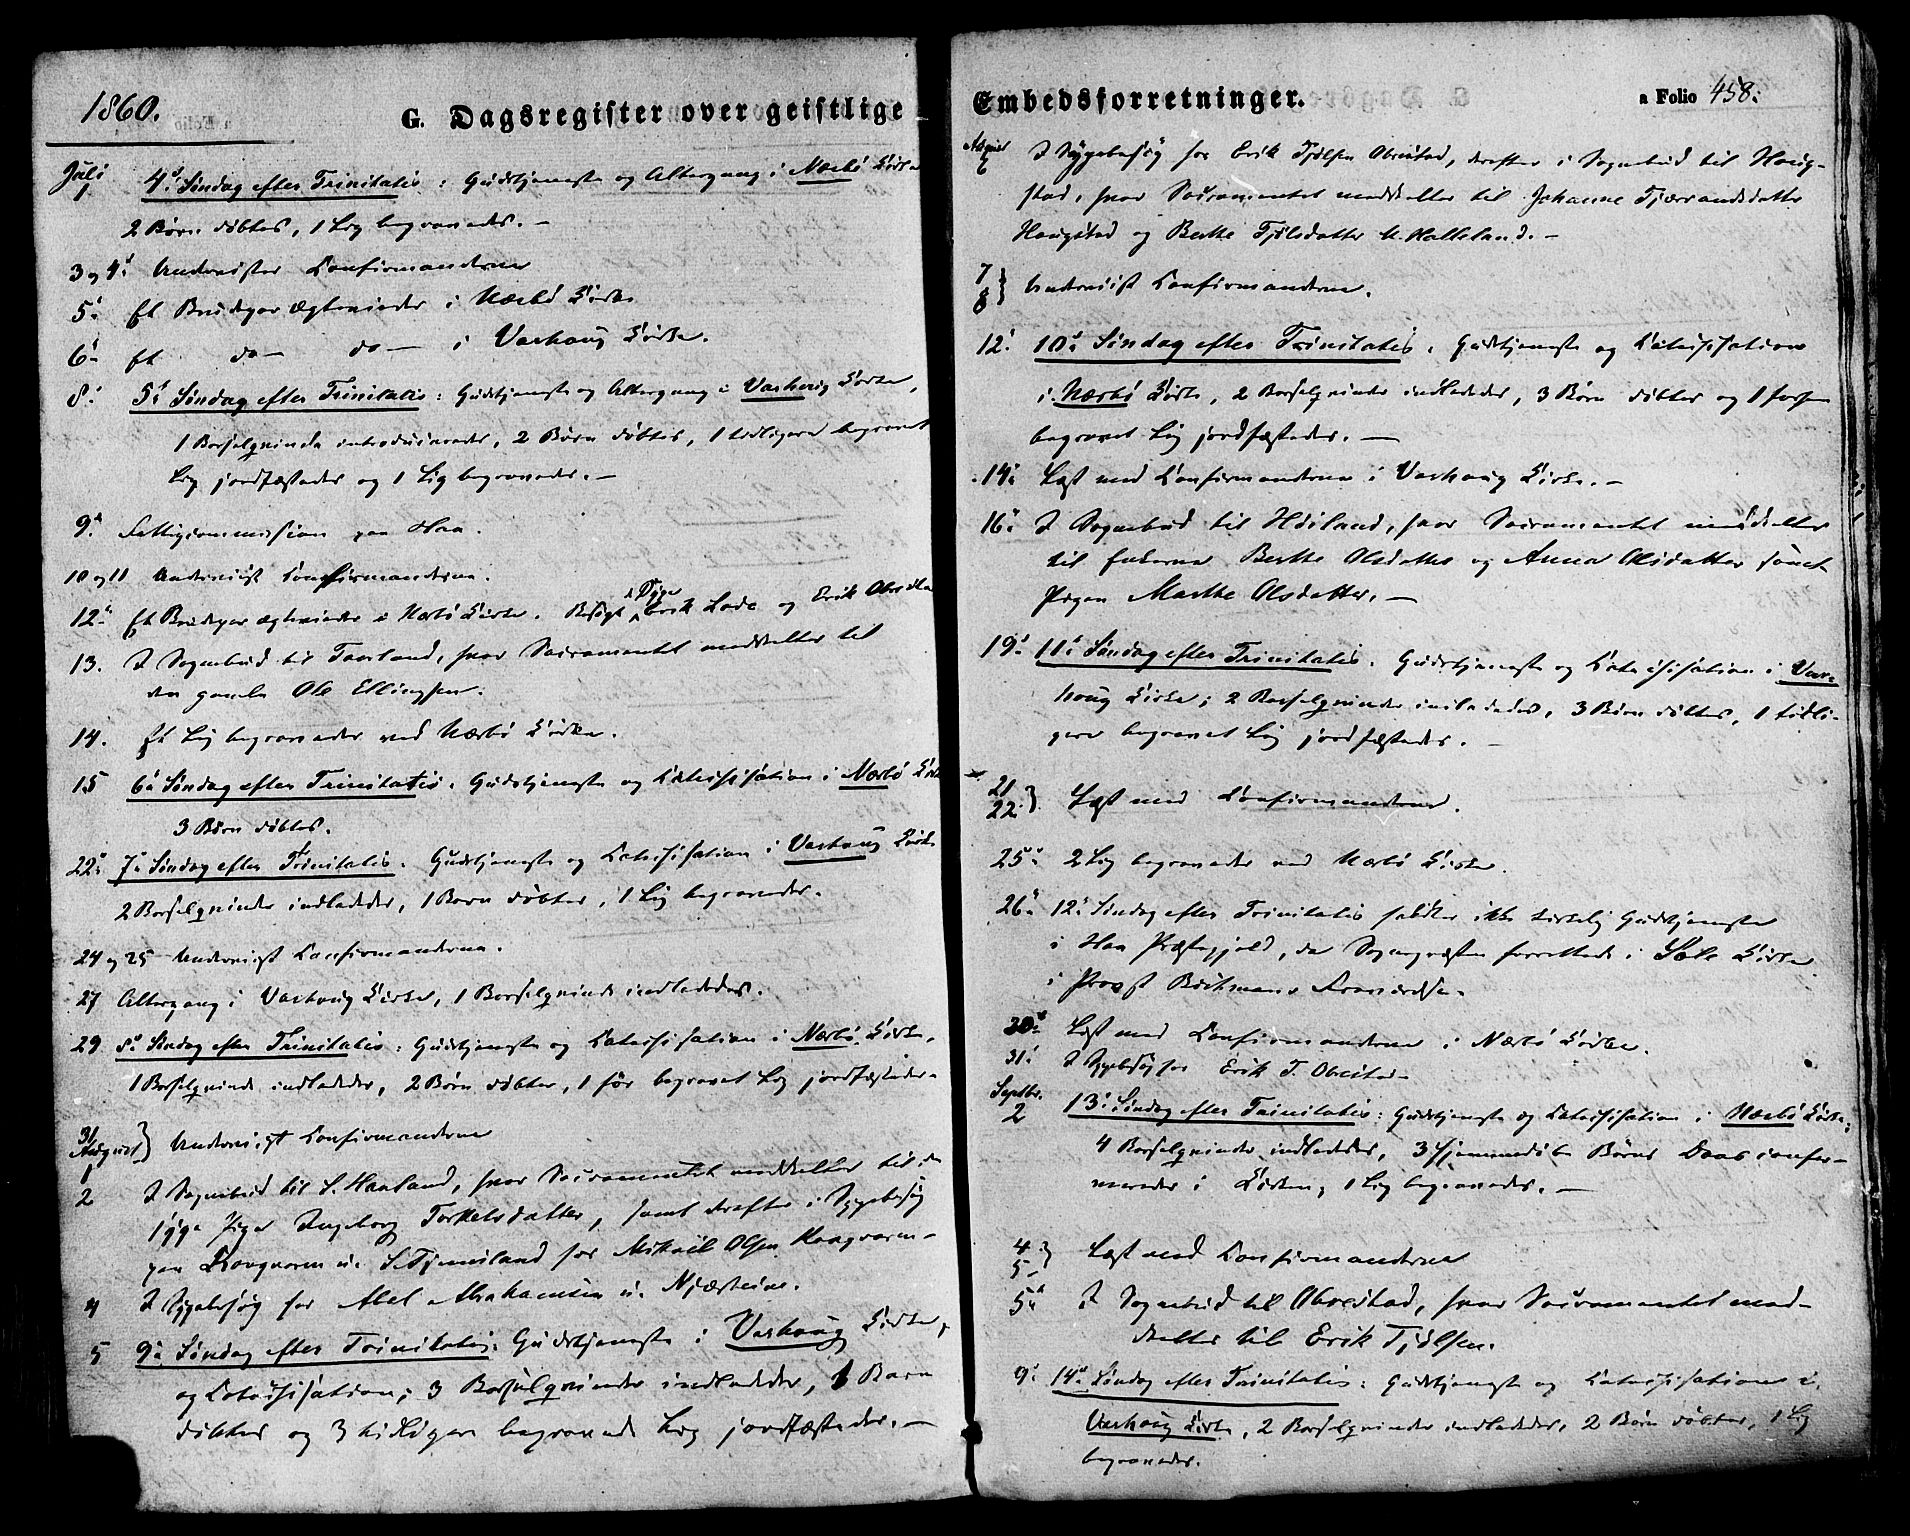 1860.
G. Dagsregister over geistlige
Juli
1 4de Søndag efter Trinitatis: Gudstjeneste og Altergang i Nærbø Kirke
2 Børn døbtes, 1 Lig begravedes. —
3 og 4de Underviste Confirmanderne
5. Et Brudepar ægteviedes i Nærbø Kirke
6. Et do— do— i Varhoug Kirke.
8. 5te Søndag efter Trinitatis: Gudstjeneste og Altergang i Varhoug Kirke,
1 Barselqvinde introduceredes, 2 Børn døbtes, 1 tidligere begravet
Lig jordfæstedes og 1 Lig begravedes. —
9. Fattigcommission paa Haa.
10 og 11 Underviist Confirmanderne.
12. Et Brudepar ægteviedes i Nærbø Kirke. Besøgt d Syge Erik Lode og Erik Obrestad
13. I Sognebud til Taarland, hvor Sacramentet meddeeltes til
den gamle Ole Ellingsen.
14. Et Lig begravedes ved Nærbø Kirke.
15 6te Søndag efter Trinitatis. Gudstjeneste og Catechisation i Nærbø Kirke
3 Børn døbtes.
22. 7de Søndag efter Trinitatis. Gudstjeneste og Catechisation i Varhoug Kirke
2 Barselqvinder indlededes, 1 Barn døbtes, 1 Lig begravedes.
24 og 25 Underviist Confirmanderne.
27 Altergang i Varhoug Kirke, 1 Barselqvinde indlededes.
29 8de Søndag efter Trinitatis: Gudstjeneste og Catechisation i Nærbø Kirke,
1 Barselqvinde indlededes, 2 Børn døbtes, 1 før begravet Lig jordfæstedes.
31
August
1 } Underviist Confirmanderne
2 I Sognebud til S. Haaland, hvor Sacramentet meddeeltes til den
syge Pige Ingeborg Torkelsdatter, samt derefter i Sygebesøg
paa u. S. Tjemsland for Mikael Olsen
4 I Sygebesøg for Abel Abrahamsen u. Njærheim.
5 9de Søndag efter Trinitatis: Gudstjeneste i Varhoug Kirke,
og Catechisation; 3 Barselqvinder indlededes, 1 Barn
døbtes og 3 tidligere begravede Lig jordfæstedes. —
Embedsforretninger.
a Folio 458.
August
6 I Sygebesøg for Erik Tjølsen Obrestad, derefter i Sognebud til Haug-
stad, hvor Sacramentet meddeeltes til Johanne Tjærandsdatter
Haugstad og Berthe Tjølsdatter u. Halleland. —
7
8 } Underviist Confirmanderne.
12. 10de Søndag efter Trinitatis. Gudstjeneste og Catechisation
i Nærbø Kirke, 2 Barselqvinder indlededes, 3 Børn døbtes og 1 forhen
begravet Lig jordfæstedes. —
14. Læst med Confirmanderne i Varhoug Kirke. —
16. I Sognebud til Høiland, hvor Sacramentet meddeeltes
til Enkerne Berthe Olsdatter og Anna Olsdatter samt
Pigen Marthe Olsdatter. —
19. 11te Søndag efter Trinitatis. Gudstjeneste og Catechisation i Var-
houg Kirke; 2 Barselqvinder indlededes, 3 Børn døbtes, 1 tidli-
gere begravet Lig jordfæstedes. —
21
22 } Læst med Confirmanderne.
25. 2 Lig begravedes ved Nærbø Kirke.
26. 12te Søndag efter Trinitatis holdtes ikke kirkelig Gudstjeneste
i Haa Præstegjeld, da Sognepræsten forrettede i Sole Kirke
i Provst Fraværelse.
30. Læst med Confirmanderne i Nærbø Kirke.
31. I Sygebesøg for Erik T. Obrestad —
Septbr.
2 13de Søndag efter Trinitatis: Gudstjeneste og Catechisation i Nærbø Kirke;
4 Barselqvinder indlededes, 3 hjemmedøbte Børns Daab confir-
meredes i Kirken, 1 Lig begravedes. —
4
5 } Læst med Confirmanderne
5. I Sognebud til Obrestad, hvor Sacramentet med-
deeltes til Erik Tjølsen.
9. 14de Søndag efter Trinitatis: Gudstjeneste og Catechisation i
Varhoug Kirke, 2 Barselqvinder indlededes, 2 Børn døbtes, 1 Lig
begravedes.